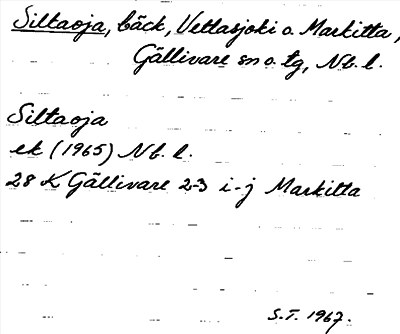 Siltaoja, bäck, Vettasjoki o. Markitta,
Gällivare sn o. tg, Nb. l.
Siltaoja
ek (1965) Nb. l.
28 K Gällivare 2-3 i-j Markitta
S.T. 1967.